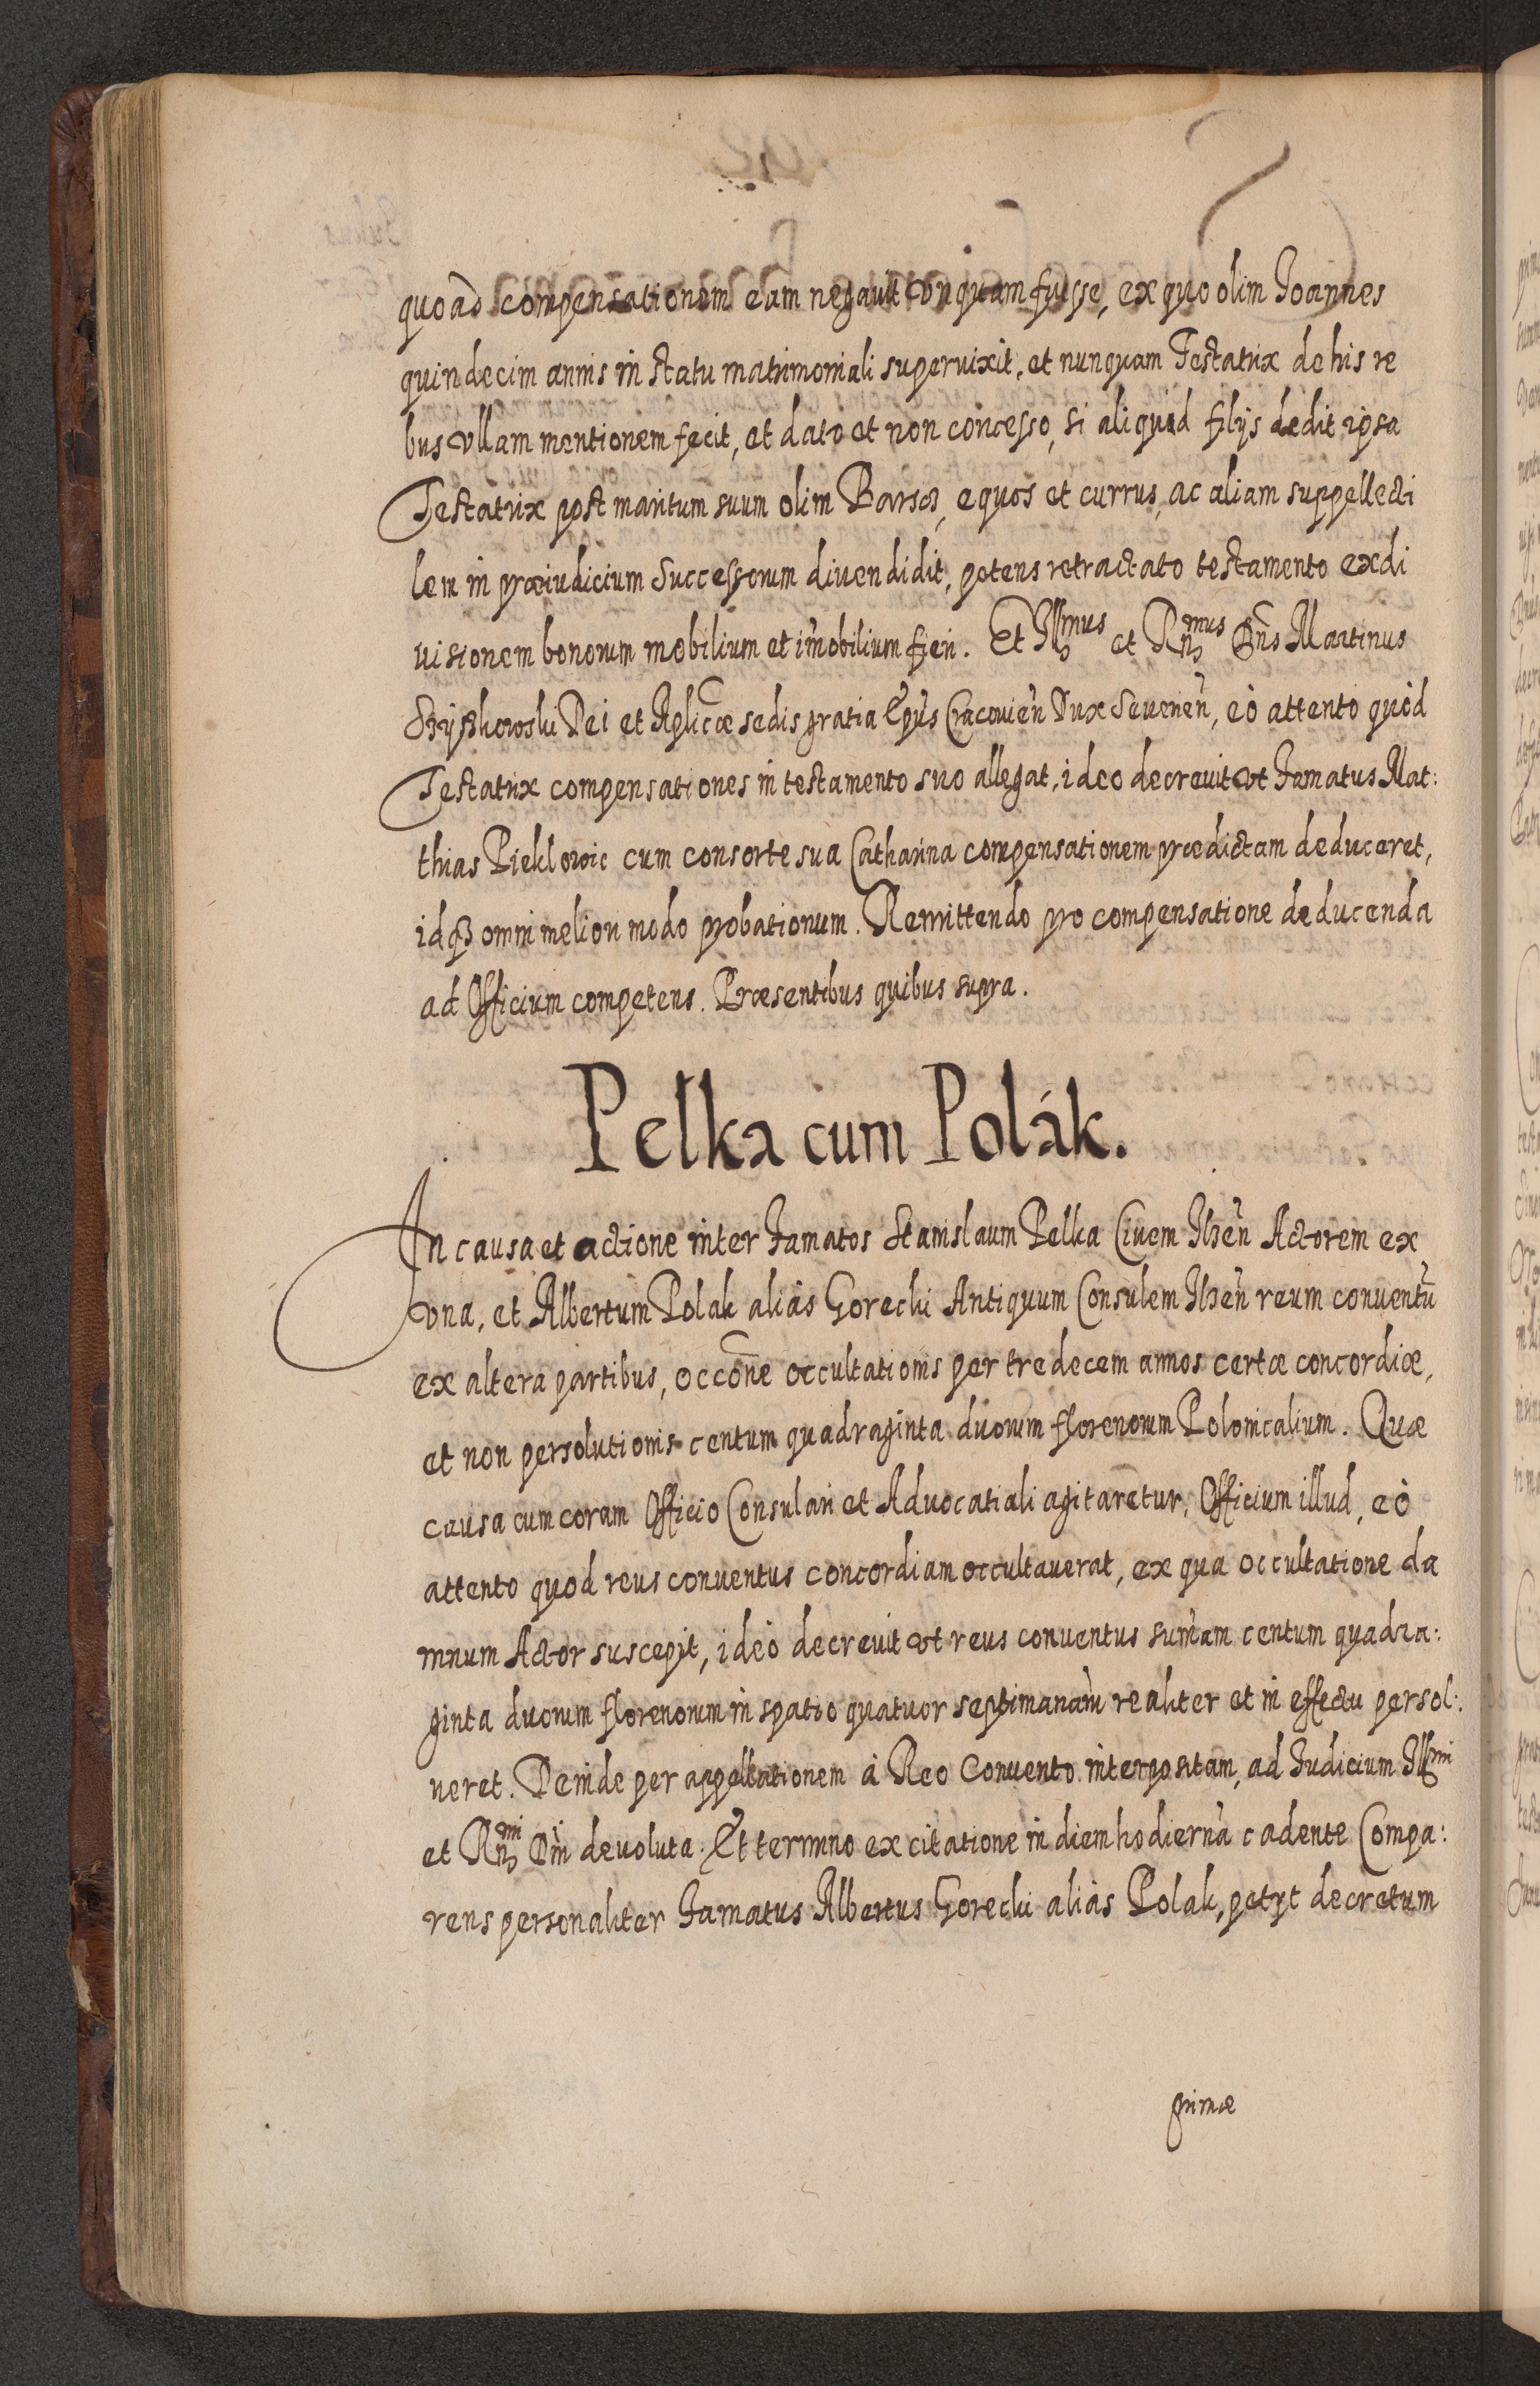 quoad compensationem eam negauit vnquam fuisse, ex quo olim Joannes
quindecim annis in statu matrimoniali superuixit, et nunquam Testatrix de his re
bus vllam mentionem fecit, et dato et non concesso, si aliquid filijs dedit ipsa
Testatrix post maritum suum olim Barscz, equos et currus, ac aliam suppellecti
lem in præiudicium Successorum diuendidit, petens retractato testamento ex di
uisionem bonorum mobilium et im̄obilium fieri. Et Illmus et Rndmus Dn̄s Martinus
Szÿszkowski Dei et Aplicæ sedis gratia Ep̄us Cracouien̄ Dux Seuerien̄, eò attento quòd
Testatrix compensationes in testamento suo allegat, ideo decreuit vt Famatus Mat:
thias Pieklowic cum consorte sua Catharina compensationem prædictam deduceret,
idqȝ omni meliori modo probationum. Remittendo pro compensatione deducenda
ad Officium competens. Præsentibus quibus supra.
Pelka cum Polák.
In causa et actione inter Famatos Stanislaum Pelka Ciuem Ilzen̄ Actorem ex
vna, et Albertum Polak aliàs Gorecki Antiquum Consulem Ilzen̄ reum conuentū
ex altera partibus, occōne occultationis per tredecem annos certæ concordiæ,
et non persolutionis centum quadraginta duorum florenorum Polonicalium. Quæ
causa cum coram Officio Consulari et Aduocatiali agitaretur, Officium illud, eò
attento quod reus conuentus concordiam occultauerat, ex qua occultatione da
mnum Actor suscepit, ideò decreuit vt reus conuentus sum̄am centum quadra:
ginta duorum florenorum in spatio quatuor septimanarū realiter et in effectu persol:
ueret. Deinde per appellationem à Reo Conuento interpositam, ad Iudicium Illmi
et Rndmi Dn̄i deuoluta. Et termino ex citatione in diem hodiernā cadente Compa:
rens personaliter Famatus Albertus Gorecki aliàs Polak, petijt decretum
primæ